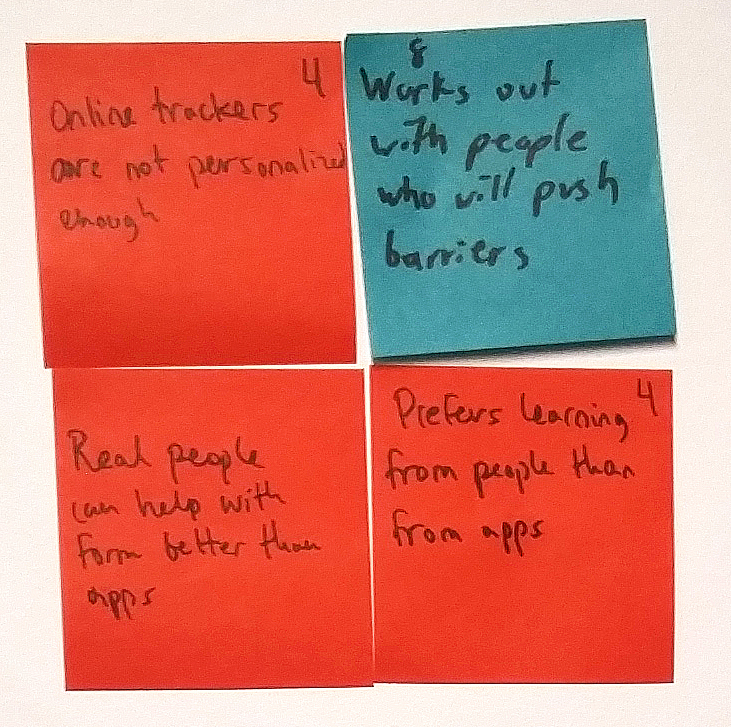 4
Online trackers
are not personalized
enough
8
Works out
with people
who will push
barriers
Real people
can help with
form better than
apps
4
Prefers learning
from people than
from apps